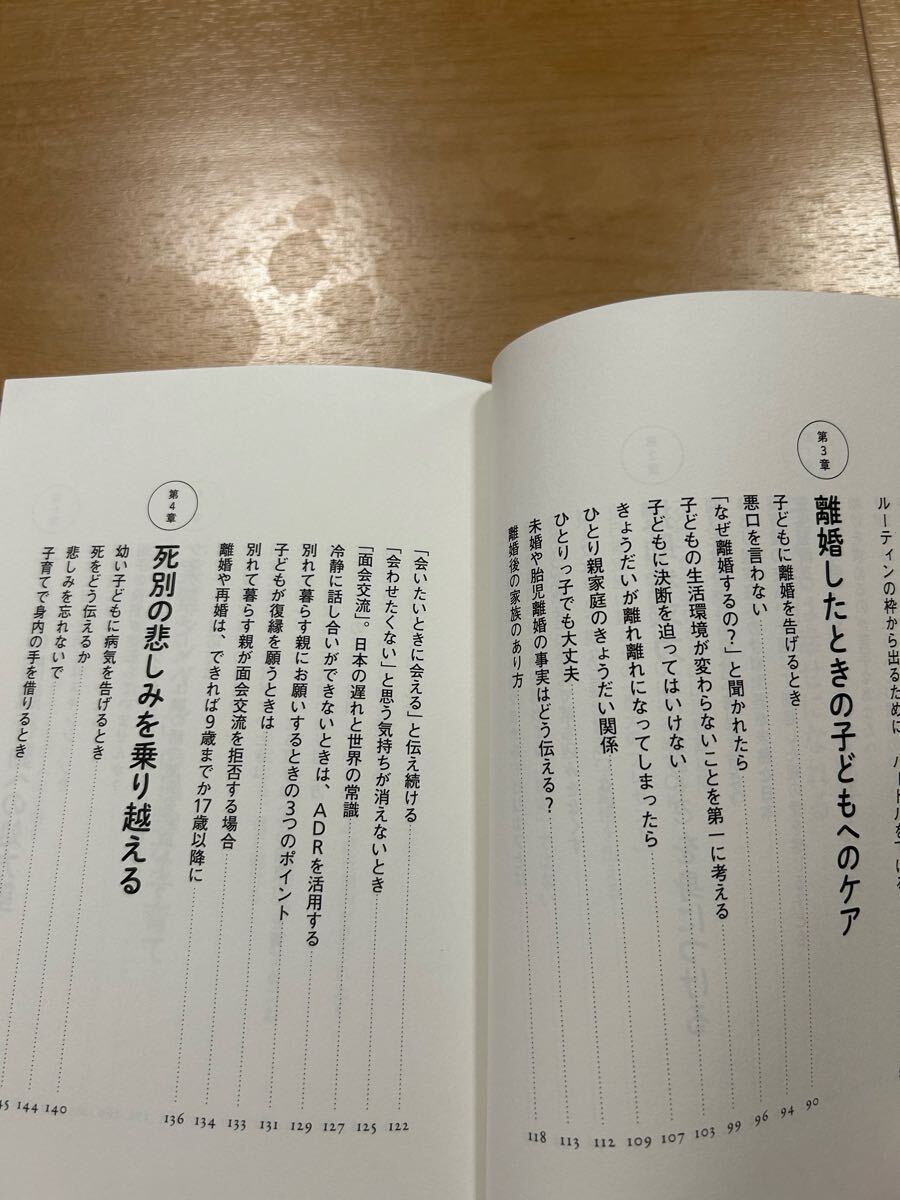 ルーティンの枠から出るために
第3章
離婚したときの子どもへのケア
子どもに離婚を告げるとき 90
悪口を言わない 94
「なぜ離婚するの?」と聞かれたら 96
子どもの生活環境が変わらないことを第一に考える 99
子どもに決断を迫ってはいけない 103
きょうだいが離れ離れになってしまったら 107
ひとり親家庭のきょうだい関係 109
ひとりっ子でも大丈夫 112
未婚や胎児離婚の事実はどう伝える? 113
離婚後の家族のあり方 118
「会いたいときに会える」と伝え続ける 122
「会わせたくない」と思う気持ちが消えないとき 125
「面会交流」。日本の遅れと世界の常識 127
冷静に話し合いができないときは、ADRを活用する 129
別れて暮らす親にお願いするときの3つのポイント 131
子どもが復縁を願うときは 133
別れて暮らす親が面会交流を拒否する場合 134
離婚や再婚は、できれば9歳までか17歳以降に 136
第4章
死別の悲しみを乗り越える
幼い子どもに病気を告げるとき 140
死をどう伝えるか 144
悲しみを忘れないで 45
子育てで身内の手を借りるとき